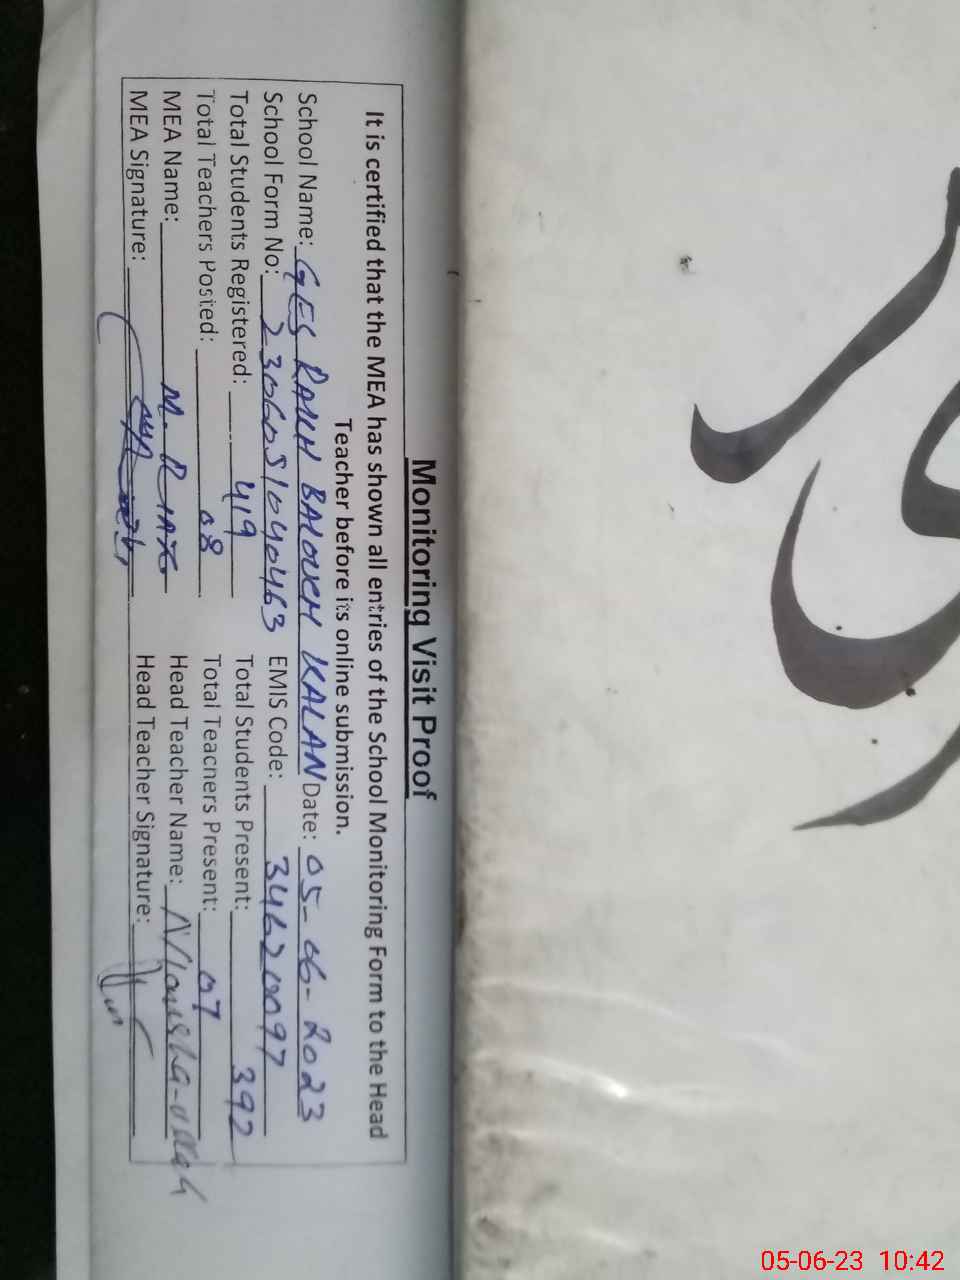 Monitoring Visit Proof
It is certified that the MEA has shown all entries of the School Monitoring Form to the Head
Teacher before its online submission.
School Name: GES RAKH BALOUCH KALAN Date: 05-06-2023
School Form No: 2306051040463 EMIS Code: 34620097
Total Students Registered: 419 Total Students Present: 392
Total Teachers Posted: 08 Total Teachers Present: 07
MEA Name: M. RIAZ Head Teacher Name:
MEA Signature: Head Teacher Signature:
05-06-23 10:42